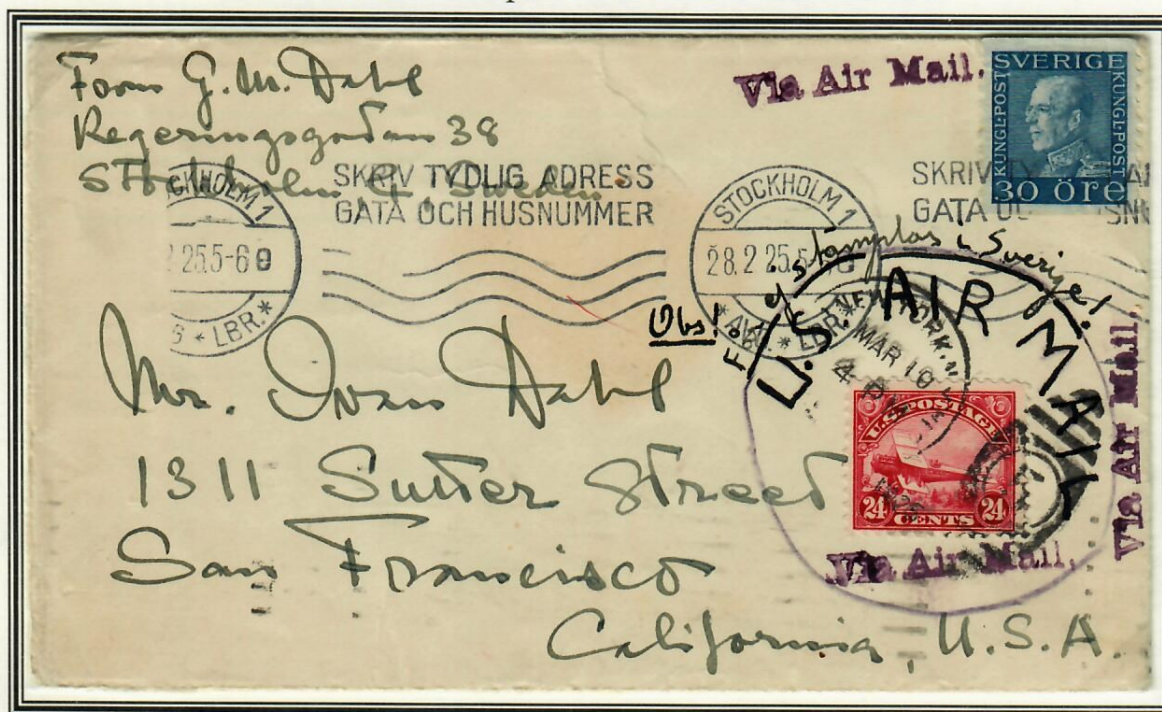 From G. M. Dahl
Regeringsgatan 38
Stockholm, Sweden
Via Air Mail.
SVERIGE
KUNGL·POST
KUNGL·POST
30 öre
CKHOLM 1
2 25.5-6 e
* LBR.*
SKRIV TYDLIG ADRESS
GATA OCH HUSNUMMER
STOCKHOLM 1
28.2 25.5
LBR.*
SKRIV
GATA
Obs! stämplas i Sverige!
U.S. AIR MAIL
NEW YORK, N
MAR 10
4
U.S. POSTAGE
24 24
CENTS
Via Air Mail.
Via Air Mail.
Mr. Ivan Dahl
1311 Sutter Street
San Francisco
California, U.S.A.